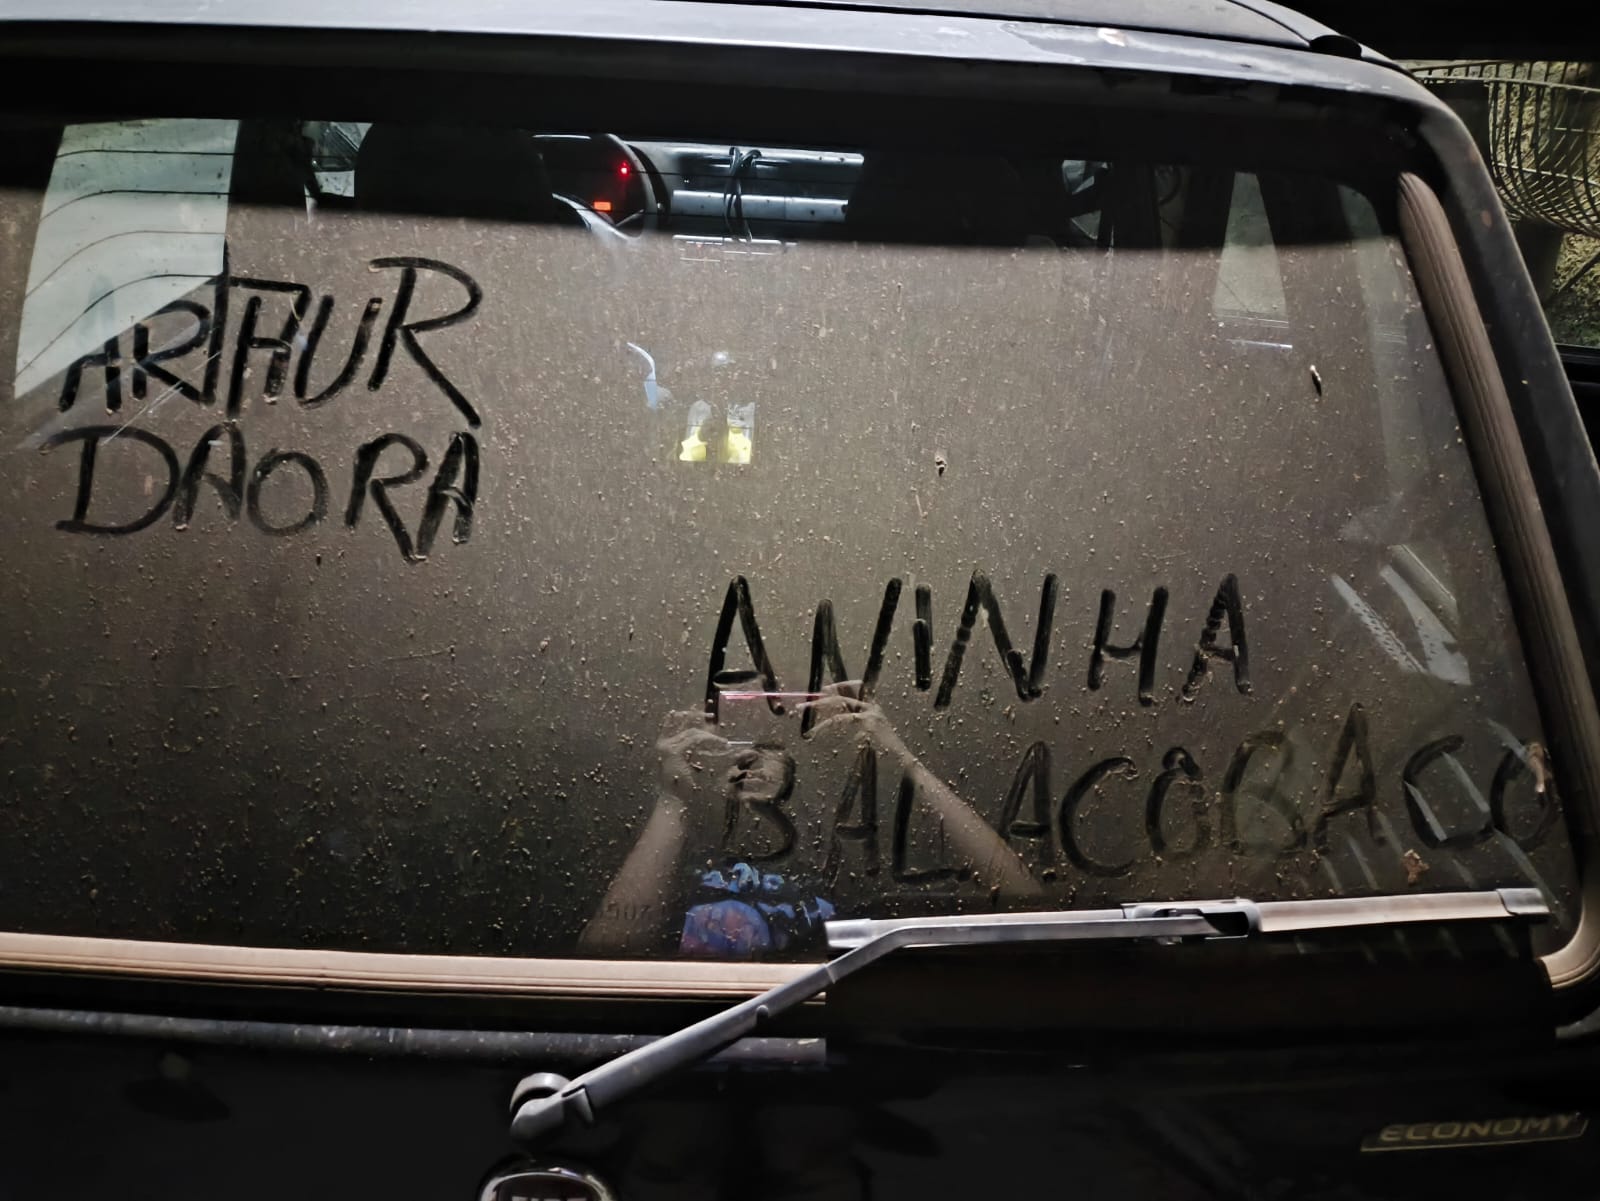 ARTHUR
DAORA
ANINHA
BALACOBACO
ECONOMY
FIAT